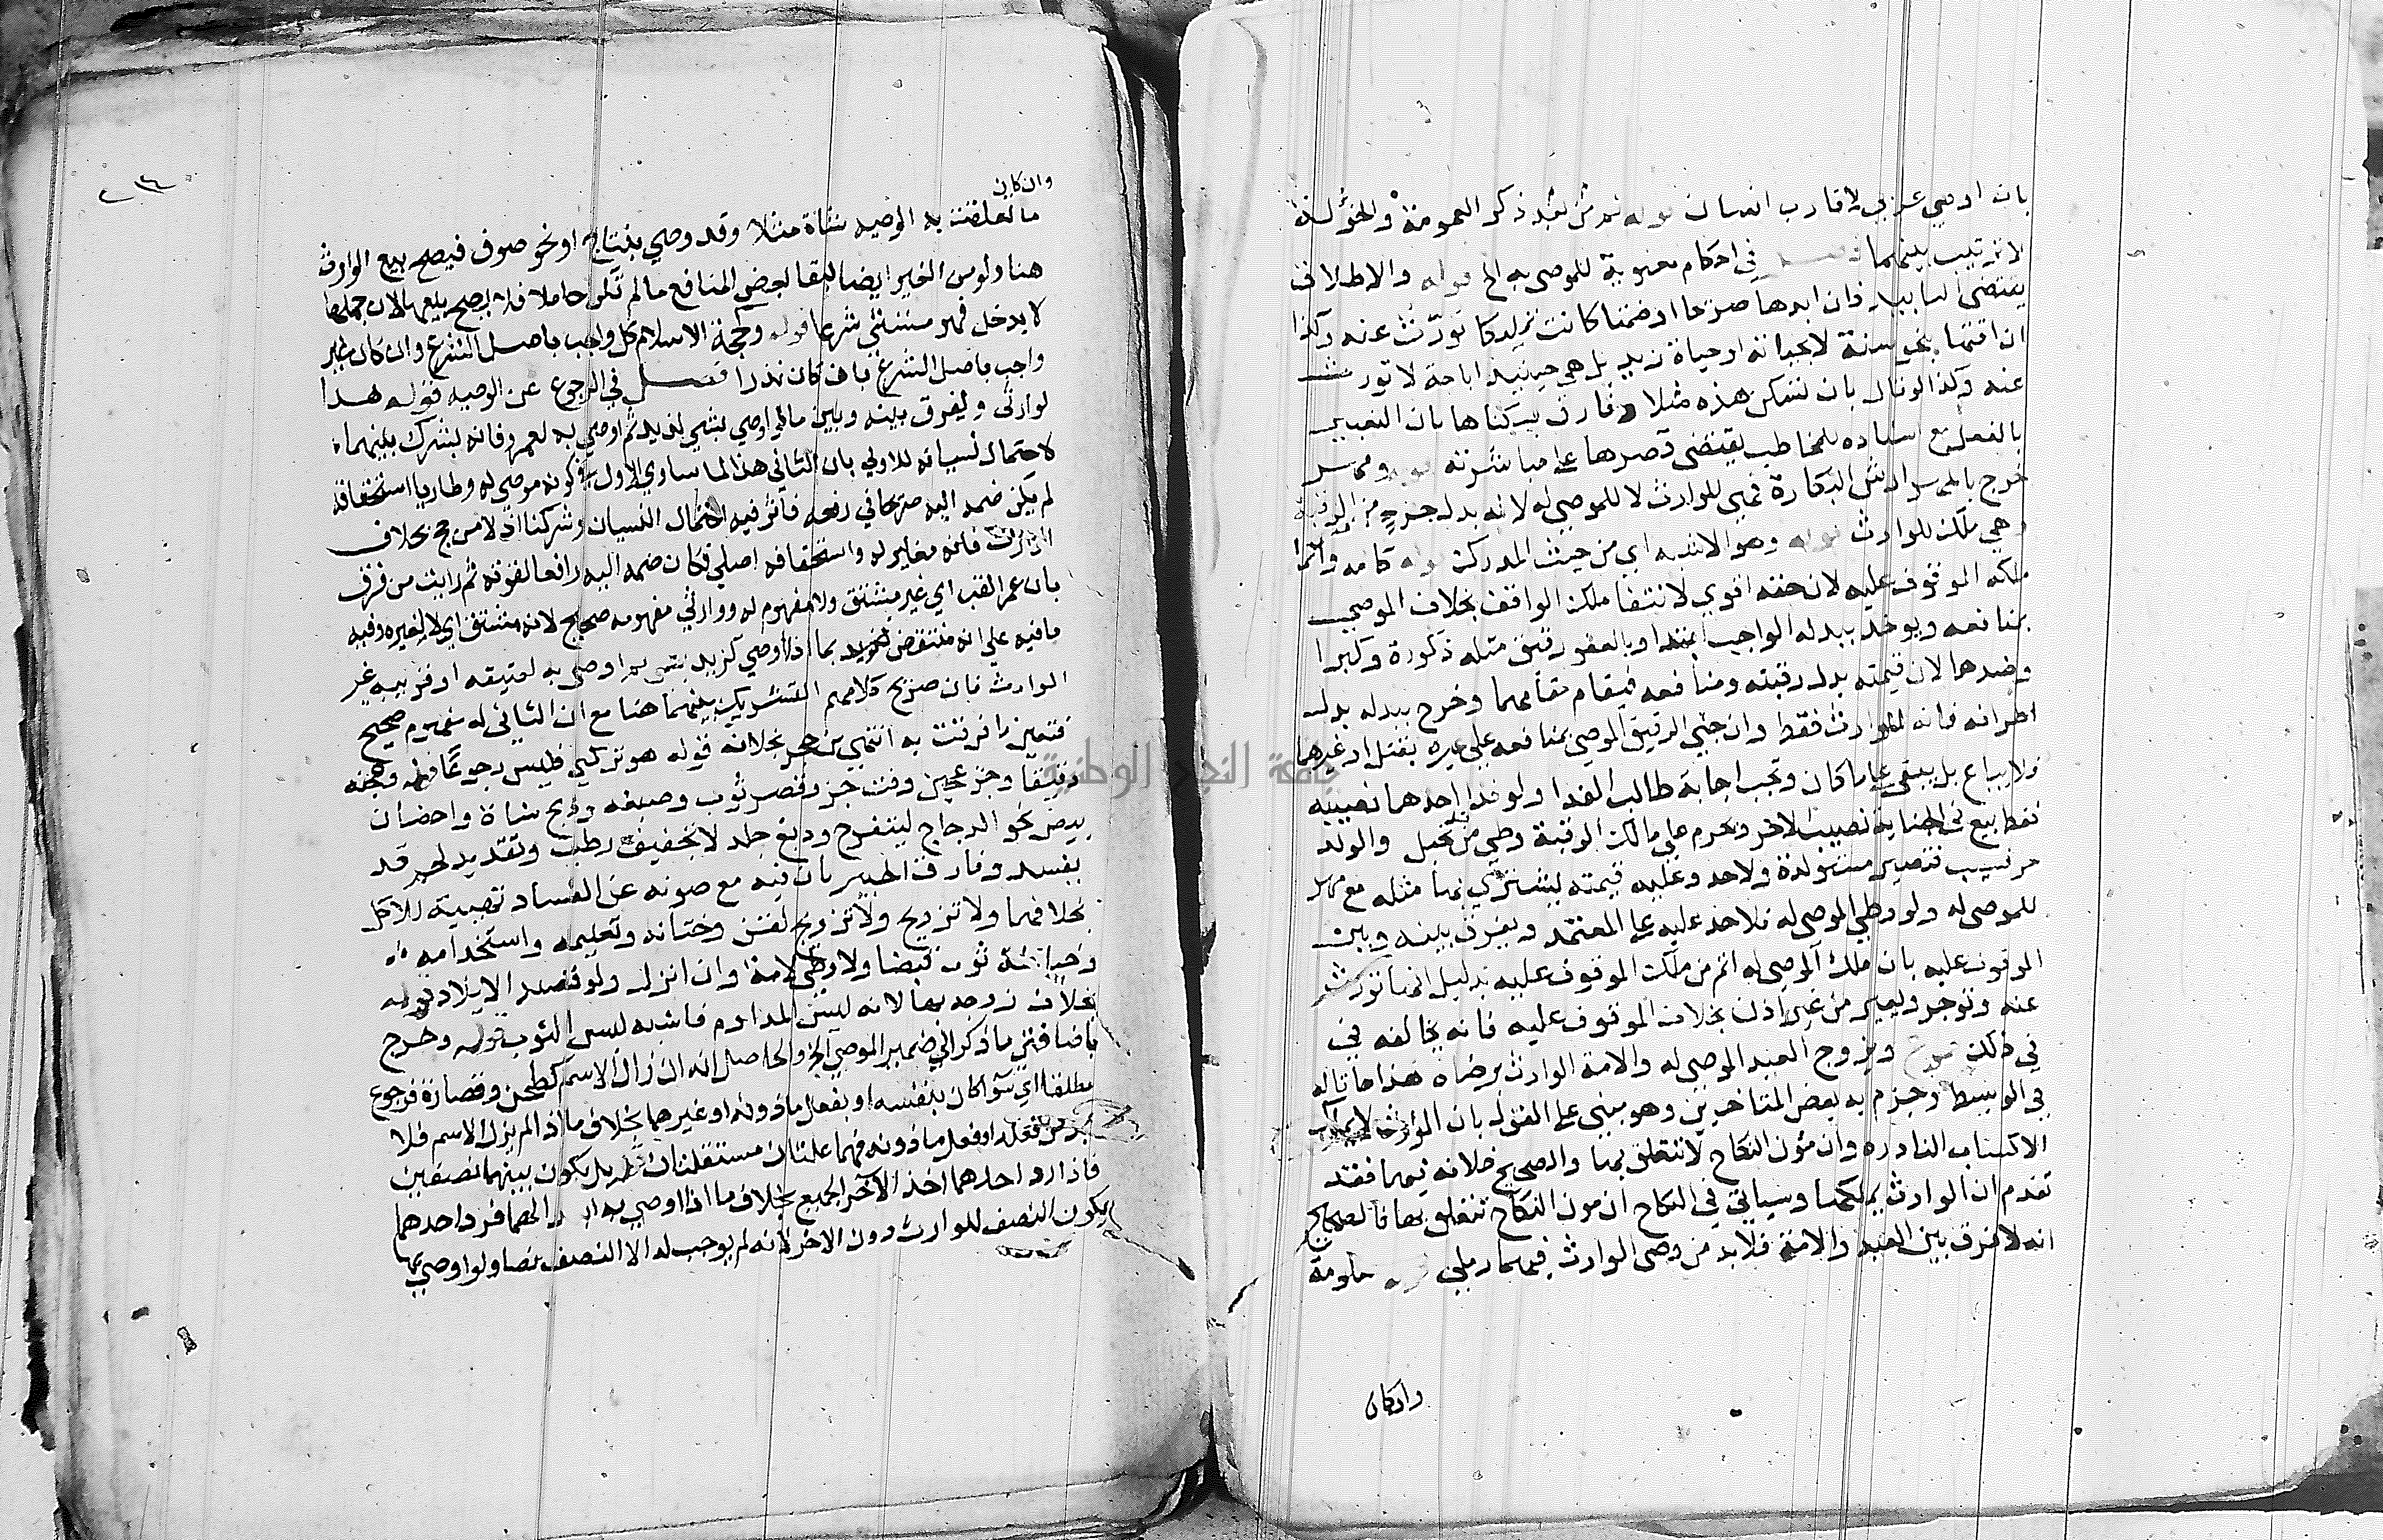 بان اوصي عربي لاقارب انسان قوله ثم بعد ذكر العمومة والخؤلة
لا ترتيب بينهما فصل في احكام معنوية للموصى به الخ قوله والاطلاق
يقتضى التابيد فان ابدها صريحا او ضمنا كانت تمليكا تورث عنه وكذا
ان اقتها بنحو سنة لا بحياته او حياة زيد بل هي حينيذ اباحة لا تورث
عنه وكذا لو قال بان تسكن هذه مثلا وفارق بسكناها بان التعبير
بالفعل مع اسناده للمخاطب يقتضى قصرها على مباشرته قوله ومهر
خرج بالمهر ارش البكارة فهي للوارث لا للموصي له لانه بدل جزء من الرقبة
وهي ملك للوارث قوله وهو الاشبه اي من حيث المدرك قوله كامه وانما
ملكه الموقوف عليه لان حقه اقوي لانتفا ملك الواقف بخلاف الموصي
بمنافعه ويوخذ ببدله الواجب ابتدا وبالعفو رقيق مثله ذكورة وكبرا
وضدهما لان قيمته بدل رقبته ومنافعه فيقام مقامهما وخرج ببدله بدل
اطرافه فانه للوارث فقط وان جني الرقيق الموصي بمنافعه على غيره بقتل او غيرها
ولا يباع بل يبقى على ما كان وتجب اجابة طالب الفدا ولو فدا احدهما نصيبه
فقط بيع في الجناية نصيب الاخر ويحرم على مالك الرقبة وطي من تحبل والولد
حر نسيب فتصير مستولدة ولا حد وعليه قيمته ليشتري بها مثله مع مهر
للموصى له ولو وطي الموصى له فلا حد عليه على المعتمد ويفرق بينه وبين
الموقوف عليه بان ملك الموصي له اتم من ملك الموقوف عليه بدليل انها تورث
عنه وتوجر وتعير من غير اذن بخلاف الموقوف عليه فانه يخالفه في
في ذلك ويزوج العبد الموصى له والامة الوارث برضاه هذا ما قاله
في الوسيط وجزم به بعض المتاخرين وهو مبني على القول بان الوارث لا يملك
الاكساب النادره وان مؤن النكاح لا تتعلق بها والصحيح خلافه فيهما فقد
تقدم ان الوارث يملكها وسياتي في النكاح ان مون النكاح تتعلق بها فالصحيح
انه لا فرق بين العبد والامة فلا بد من رضى الوارث فيهما رملي معلومة
وان كان
وان كان
ما تعلقت به الوصيه شاة مثلا وقد وصي بنتاج او نحو صوف فيصح بيع الوارث
هنا ولو من الغير ايضا لبقا بعض المنافع ما لم تكن حاملا فلا يصح بيعها لان حملها
لا يدخل فهو مستثنى شرعا قوله وحجة الاسلام كل واجب باصل الشرع وان كان غير
واجب باصل الشرع بان كان نذرا فصل في الرجوع عن الوصيه قوله هذا
لوارثى ويفرق بينه وبين ما لو اوصي بشي لزيد ثم اوصي به لعمرو فانه يشرك بينهما
لاحتمال نسيانه للاولي بان الثاني هنا لما ساوي الاول في كونه موصي له وطاريا استحقاقه
لم يكن ضمه اليه صريحا في رفعه فاثر فيه احتمال النسيان وشركنا اذ لا مرجح بخلاف
الوارث فانه مغاير له واستحقاقه اصلي فكان ضمه اليه رافعا لقوته ثم رايت من فرق
بان عمر لقب اي غير مشتق ولا مفهوم له ووارثي مفهومه صحيح لانه مشتق اي لا لغيره وفيه
ما فيه على انه منتقض بما اذا اوصي لزيد بشي ثم اوصى به لعتيقه او قريبه غير
الوارث فان صريح كلامهم التشريك بينهما هنا مع ان الثاني له مفهوم صحيح
فتعين ما فرقت به انتهي بن حجر بخلافه قوله هو تركتي فليس رجوعا قوله وعجنه
دقيقا وخبز عجين وفت خبز وقصر ثوب وصبغه وذبح شاة واحضان
بيض نحو الدجاج ليتفرخ ودبغ جلد لا تجفيف رطب وتقديد لحم قد
يفسد وفارق الخبز بان فيه مع صونه عن الفساد تهيية للاكل
بخلافهما ولا تزويج ولا تزوج لقن وختانه وتعليمه واستخدامه
وخياطة ثوب قميصا ولا وطي لامة وان انزل ولو قصد الايلاد قوله
بخلاف زوجه بها لانه ليس للمدادم فاشبه لبس الثوب قوله وخرج
باضافتي ما ذكر الي ضمير الموصي الخ والحاصل انه ان زال الاسم كطحن وقصارة فرجوع
مطلقا اي سوا كان بنفسه او بفعل ماذونه او غيرهما بخلاف ما اذا لم يزل الاسم فلا
بد من فعله او فعل ماذونه فهما علتان مستقلتان بل يكون بينهما نصفين
فاذا رد احدهما اخذ الآخر الجميع بخلاف ما اذا اوصي به لهما فرد احدهما
يكون النصف للوارث دون الاخر لانه لم يوجب له الا النصف نصا ولو اوصي بها
جامعة النجاح الوطنية